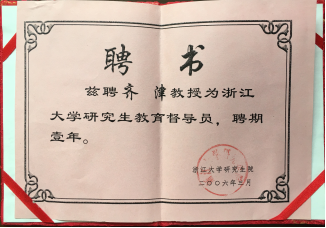 聘书
兹聘齐津教授为浙江
大学研究生教育督导员，聘期
壹年。
浙江大学研究生院
二〇〇六年三月